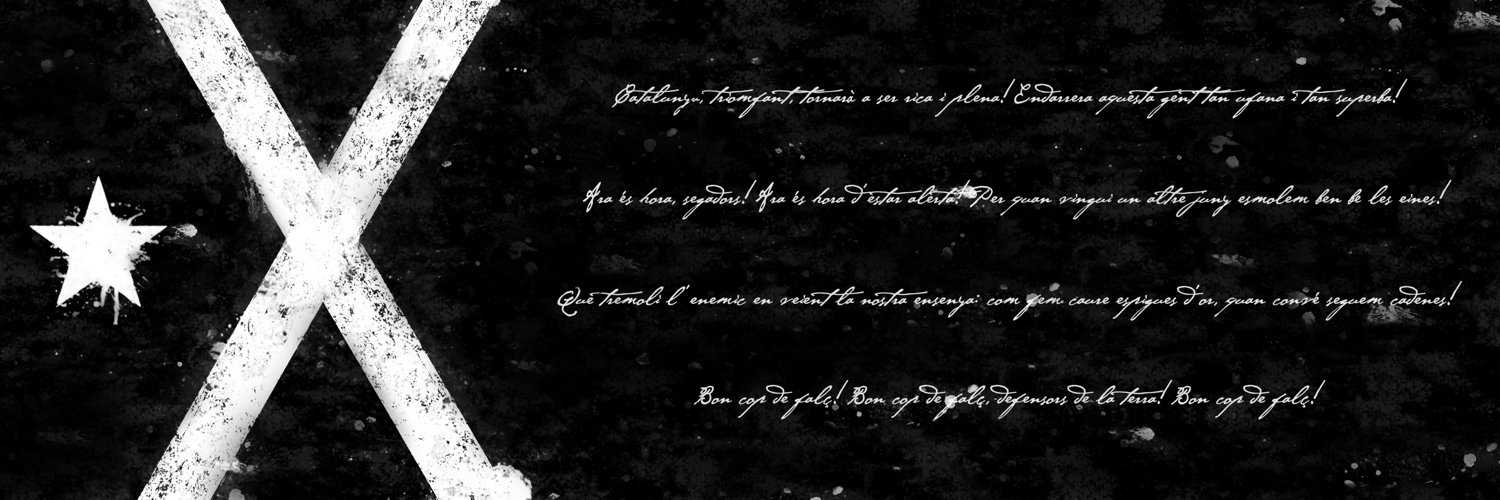 Catalunya, triomfant, tornarà a ser rica i plena! Endarrera aquesta gent tan ufana i tan superba!
Ara és hora, segadors! Ara és hora d'estar alerta! Per quan vingui un altre juny esmolem ben bé les eines!
Que tremoli l'enemic en veient la nostra ensenya: com fem caure espigues d'or, quan convé seguem cadenes!
Bon cop de falç! Bon cop de falç, defensors de la terra! Bon cop de falç!